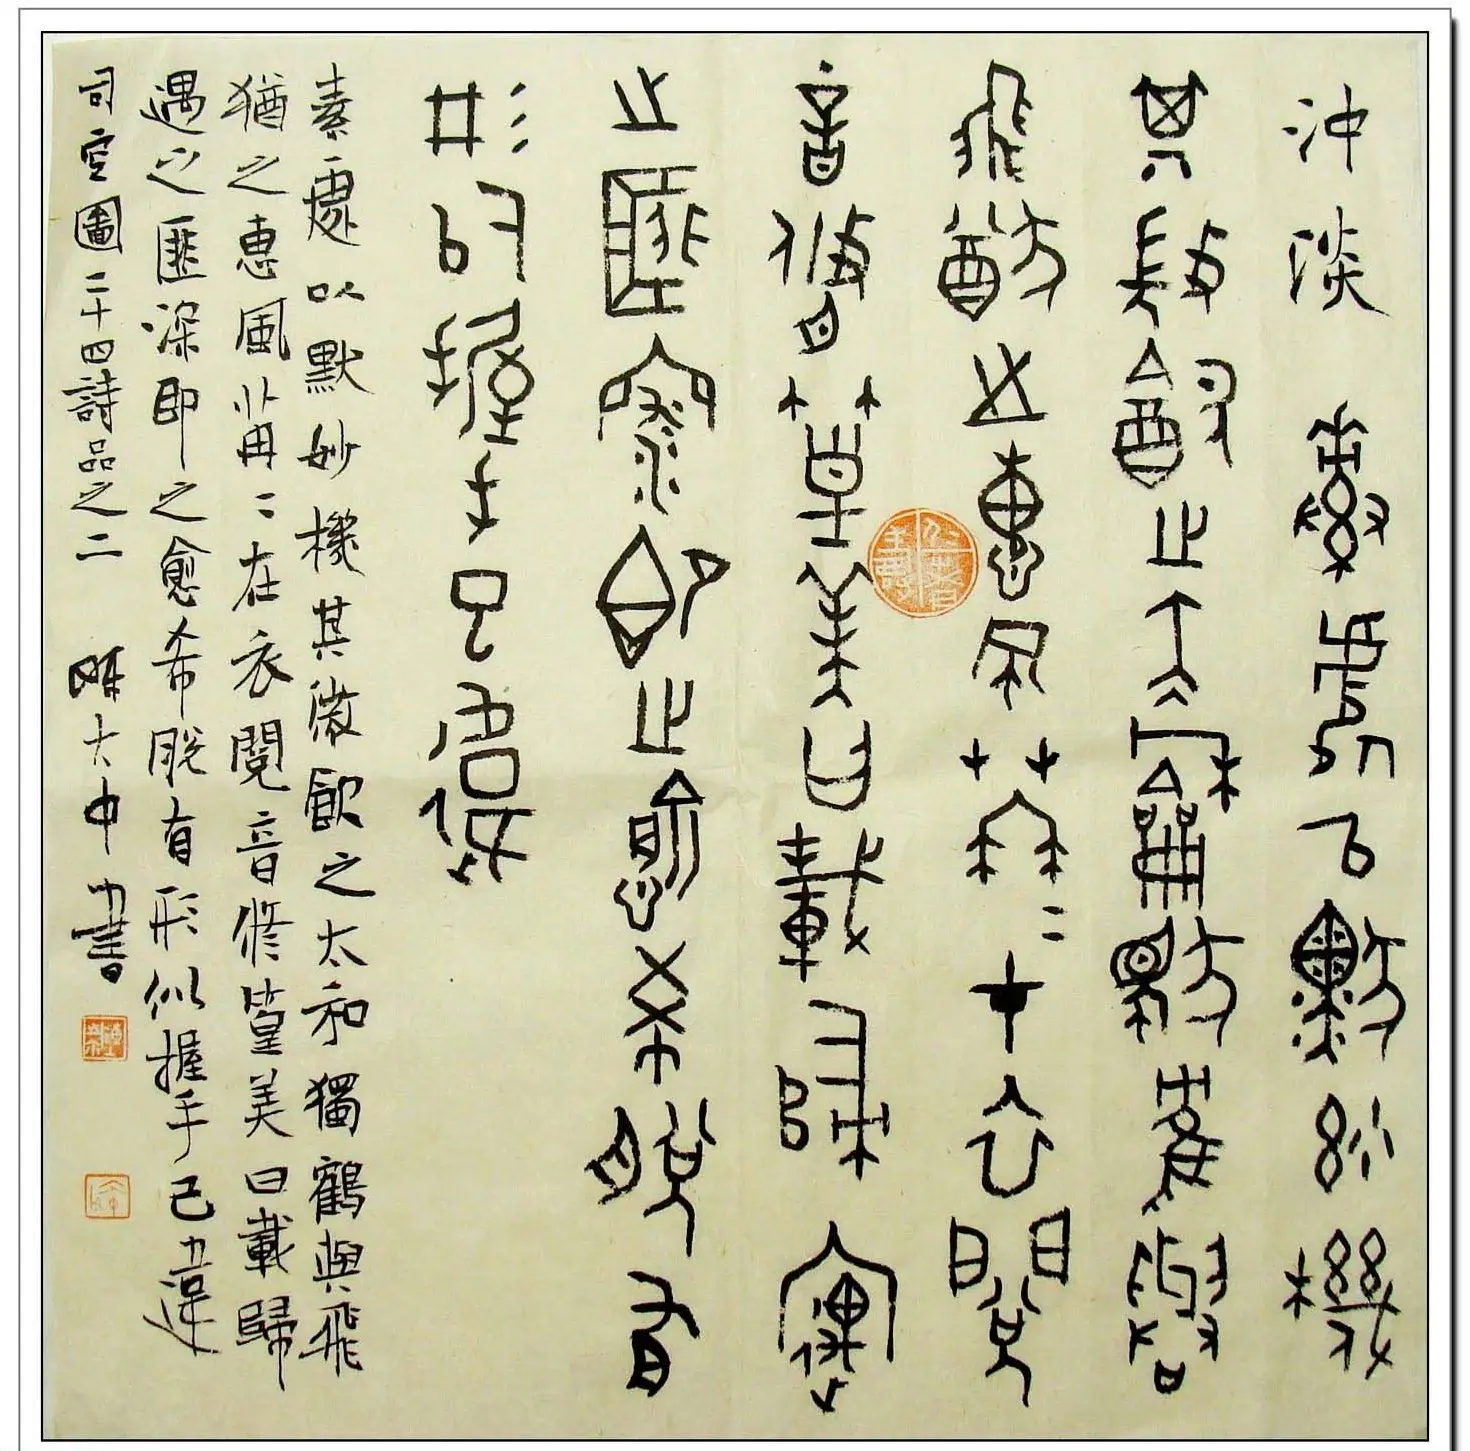 沖淡 素處以默妙機
其微飲之太和獨鶴與
飛猶之惠風苒〻在衣閱
音修篁美曰載歸遇
之匪深即之愈希脫有
形似握手已違
素處以默妙機其微飲之太和獨鶴與飛
猶之惠風苒〻在衣閱音修篁美曰載歸
遇之匪深即之愈希脫有形似握手已違
司空圖二十四詩品之二 陳大中書